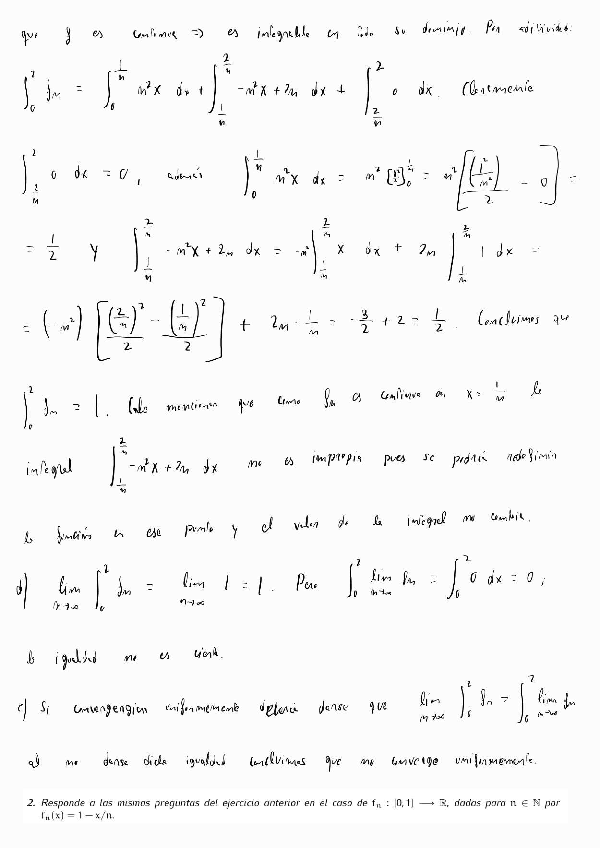 que f es continua => es integrable en todo su dominio Por aditividad:
∫_0^2 f_n = ∫_0^{1/n} n²x dx + ∫_{1/n}^{2/n} -n²x + 2n dx + ∫_{2/n}^2 0 dx. Claramente
∫_{2/n}^2 0 dx = 0, además ∫_0^{1/n} n²x dx = n² [x²/2]_0^{1/n} = n² [(1²/n²)/2 - 0] =
= 1/2 y ∫_{1/n}^{2/n} -n²x + 2n dx = -n² ∫_{1/n}^{2/n} x dx + 2n ∫_{1/n}^{2/n} 1 dx =
= (-n²) [(2/n)²/2 - (1/n)²/2] + 2n · 1/n = -3/2 + 2 = 1/2. Concluimos que
∫_0^2 f_n = 1. Cabe mencionar que como f_n es continua en x = 1/n la
integral ∫_{1/n}^{2/n} -n²x + 2n dx no es impropia pues se podría redefinir
la función en ese punto y el valor de la integral no cambia.
d) lim_{n→∞} ∫_0^2 f_n = lim_{n→∞} 1 = 1. Pero ∫_0^2 lim_{n→∞} f_n = ∫_0^2 0 dx = 0;
la igualdad no es cierta.
c) Si convergen uniformemente debería darse que lim_{n→∞} ∫_0^2 f_n = ∫_0^2 lim_{n→∞} f_n
al no darse dicha igualdad concluimos que no converge uniformemente.
2. Responde a las mismas preguntas del ejercicio anterior en el caso de f_n : [0, 1] ⟶ ℝ, dadas para n ∈ ℕ por
f_n(x) = 1 − x/n.